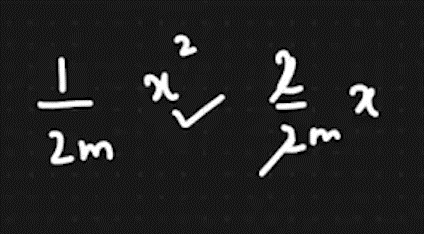 1/2m x² ✓ 2/2m x